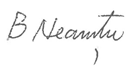 B Neamtu